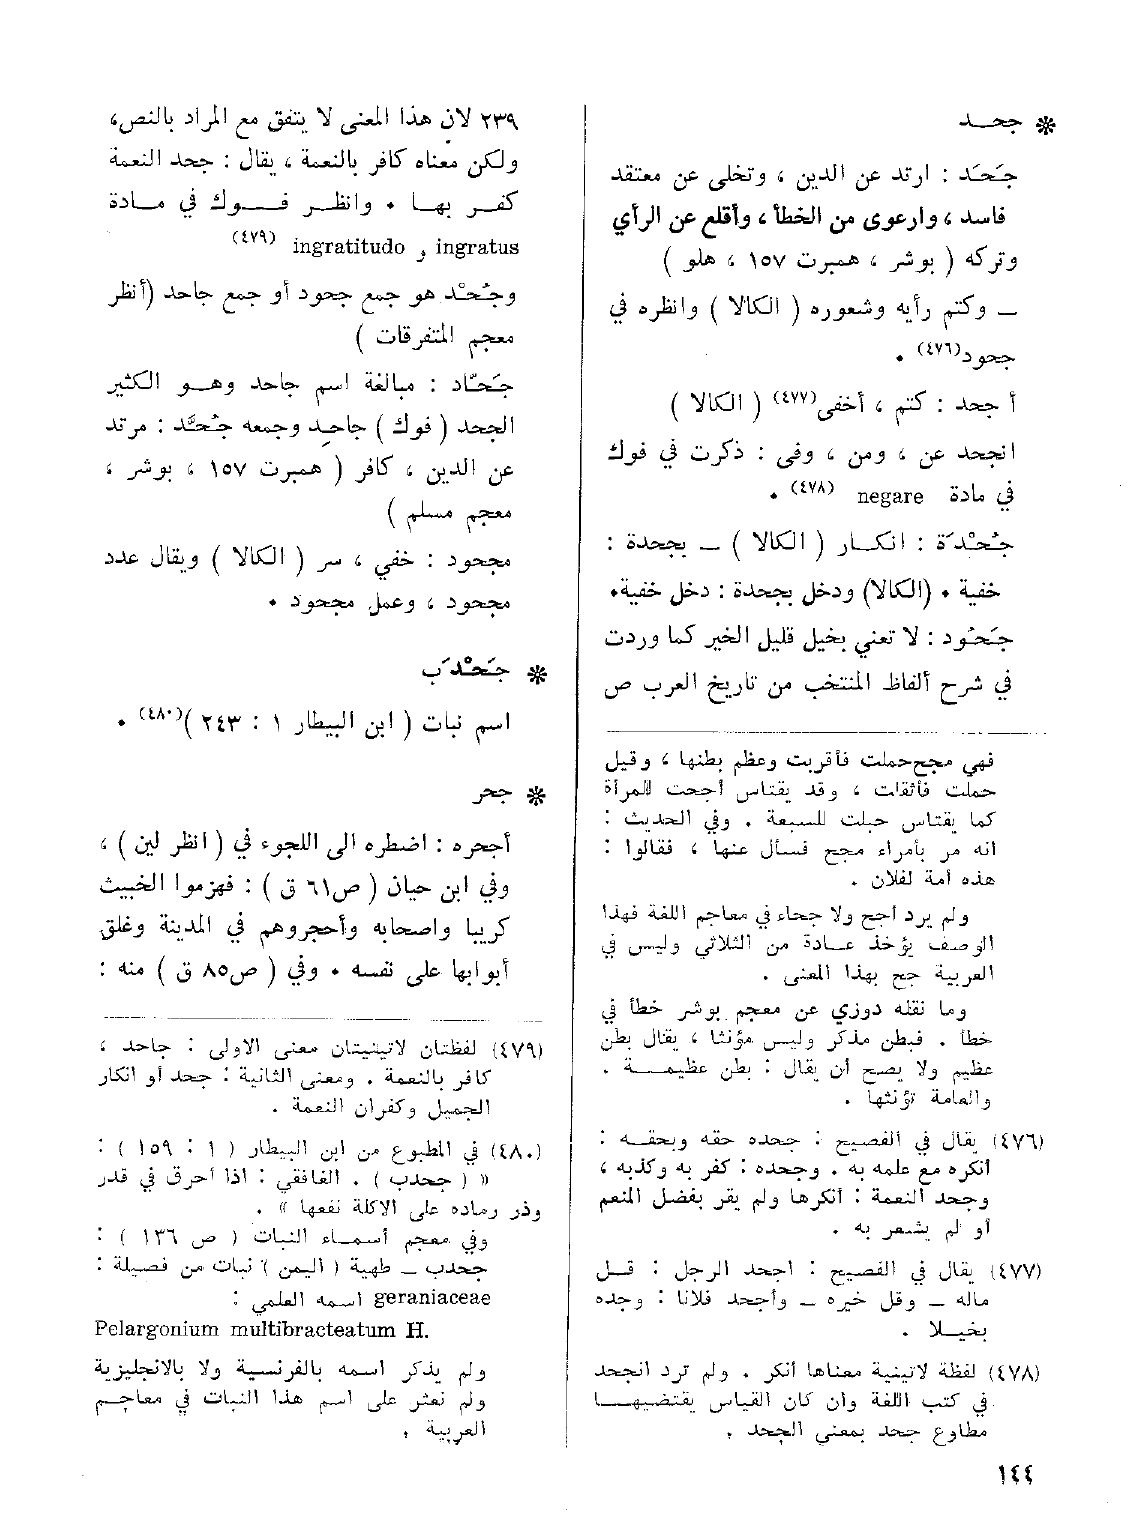 * جحـــد
جَحَد : ارتد عن الدين ، وتخلى عن معتقد
فاسد ، وارعوى من الخطأ ، وأقلع عن الرأي
وتركه ( بوشر ، همبرت ١٥٧ ، هلو )
ــ وكتم رأيه وشعوره ( الكالا ) وانظره في
جحود(٤٧٦) ٠
أ جحد : كتم ، أخفى(٤٧٧) ( الكالا )
انجحد عن ، ومن ، وفى : ذكرت في فوك
في مادة negare (٤٧٨) ٠
جُحْدَة : انكــار ( الكالا ) ــ بجحدة :
خفية ٠ (الكالا) ودخل بجحدة : دخل خفية٠
جَحُود : لا تعني بخيل قليل الخير كما وردت
في شرح ألفاظ المنتخب من تاريخ العرب ص
فهي مجححملت فأقربت وعظم بطنها ، وقيل
حملت فأثقلت ، وقد يقتاس أجحت للمرأة
كما يقتاس حبلت للسبعة . وفي الحديث :
انه مر بأمراء مجح فسأل عنها ، فقالوا :
هذه أمة لفلان .
ولم يرد أجح ولا جحاء في معاجم اللغة فهذا
الوصف يؤخذ عــادة من الثلاثي وليس في
العربية جح بهذا المعنى .
وما نقله دوزي عن معجم بوشر خطأ في
خطأ . فبطن مذكر وليس مؤنثا ، يقال بطن
عظيم ولا يصح أن يقال : بطن عظيمـــة .
والعامة تؤنثها .
(٤٧٦) يقال في الفصيح : جحده حقه وبحقــه :
أنكره مع علمه به . وجحده : كفر به وكذبه ،
وجحد النعمة : أنكرها ولم يقر بفضل المنعم
أو لم يشعر به .
(٤٧٧) يقال في الفصيح : أجحد الرجل : قــل
ماله ــ وقل خيره ــ وأجحد فلانا : وجده
بخيــلا .
(٤٧٨) لفظة لاتينية معناها أنكر . ولم ترد انجحد
في كتب اللغة وان كان القياس يقتضيهــا
مطاوع جحد بمعنى الجحد .
١٤٤
٢٣٩ لان هذا المعنى لا يتفق مع المراد بالنص،
ولكن معناه كافر بالنعمة ، يقال : جحد النعمة
كفـر بهـا ٠ وانظـر فـــوك في مــادة
ingratus و ingratitudo (٤٧٩)
وجُحْد هو جمع جحود أو جمع جاحد (أنظر
معجم المتفرقات )
جَحّاد : مبالغة اسم جاحد وهــو الكثير
الجحد ( فوك ) جاحِد وجمعه جُحَّد : مرتد
عن الدين ، كافر ( همبرت ١٥٧ ، بوشر ،
معجم مسلم )
مجحود : خفي ، سر ( الكالا ) ويقال عدد
مجحود ، وعمل مجحود ٠
* جَحْدَب
اسم نبات ( ابن البيطار ١ : ٢٤٣ )(٤٨٠) ٠
* جحر
أجحره : اضطره الى اللجوء في ( انظر لين ) ،
وفي ابن حيان ( ص٦١ ق ) : فهزموا الخبيث
كريبا واصحابه وأجحروهم في المدينة وغلق
أبوابها على نفسه ٠ وفي ( ص٨٥ ق ) منه :
(٤٧٩) لفظتان لاتينيتان معنى الاولى : جاحد ،
كافر بالنعمة . ومعنى الثانية : جحد أو انكار
الجميل وكفران النعمة .
(٤٨٠) في المطبوع من ابن البيطار ( ١ : ١٥٩ ) :
« ( جحدب ) . الغافقي : اذا أحرق في قدر
وذر رماده على الاكلة نفعها » .
وفي معجم أسمــاء النبات ( ص ١٣٦ ) :
جحدب ــ طهية ( اليمن ) نبات من فصيلة :
geraniaceae اسمه العلمي :
Pelargonium multibracteatum H.
ولم يذكر اسمه بالفرنسية ولا بالانجليزية
ولم نعثر على اسم هذا النبات في معاجـم
العربية .